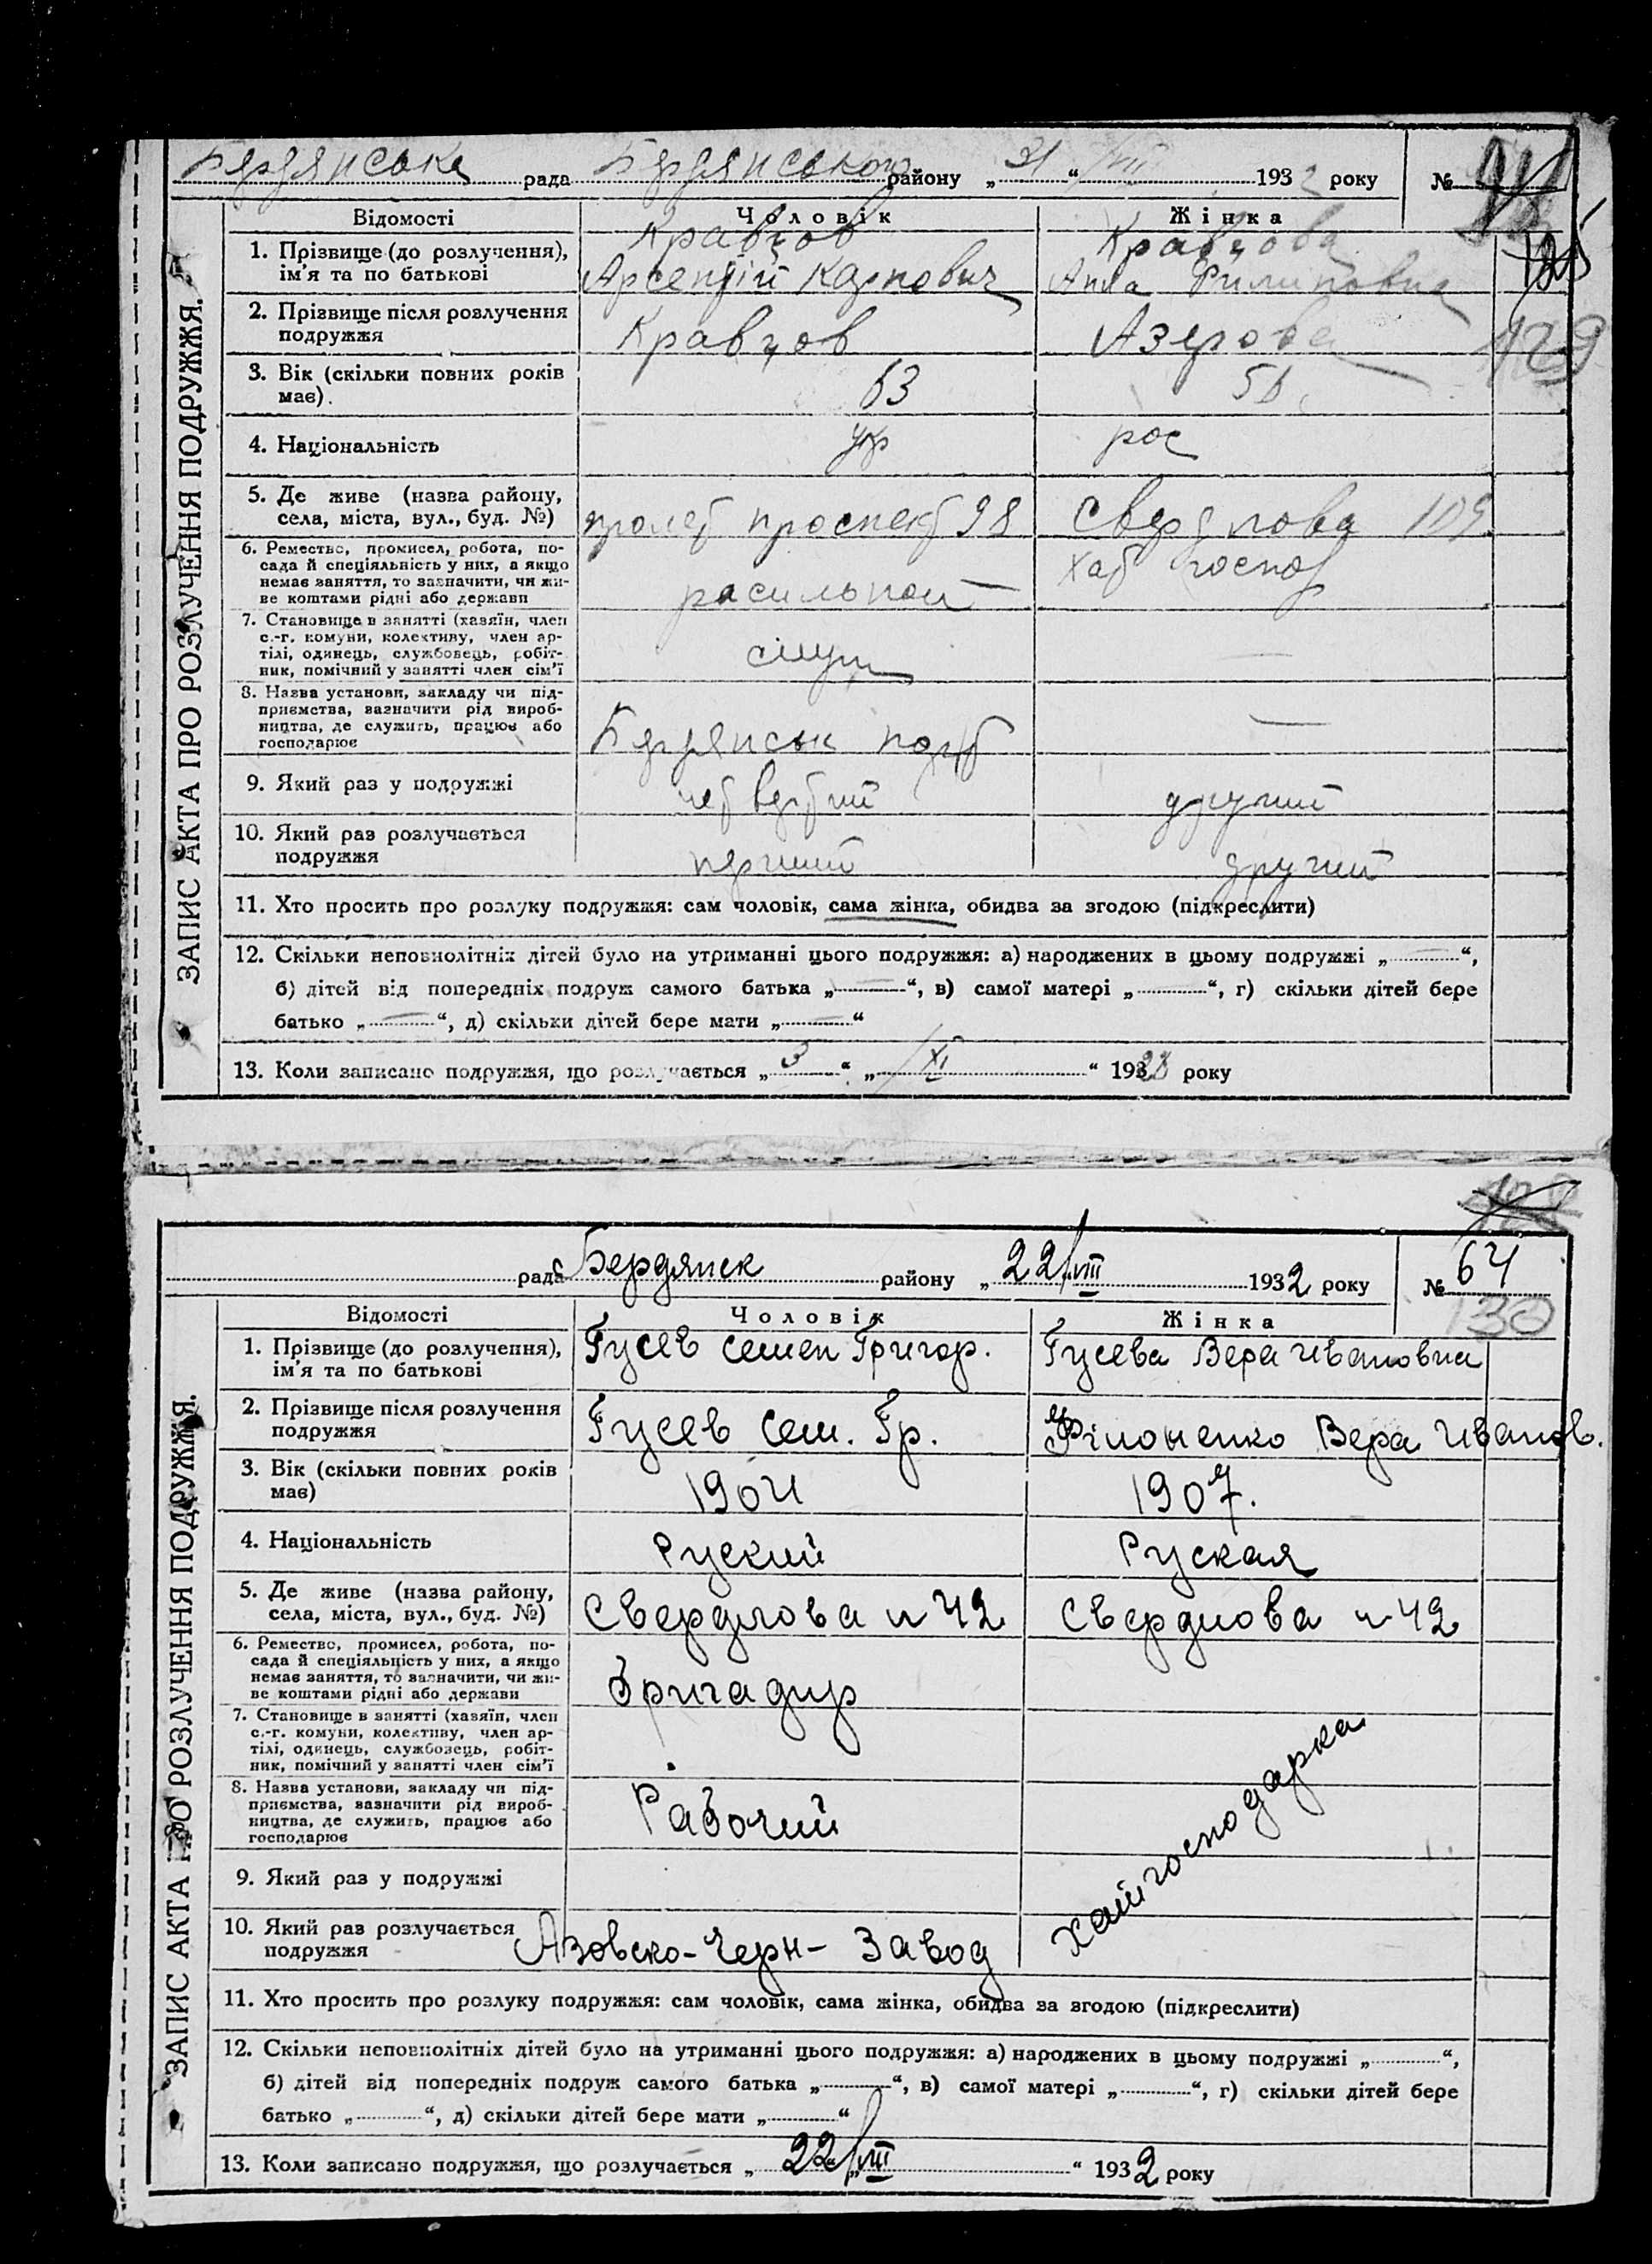 Бердянська рада Бердянського району „ 21 “ VIII 1932 року №
129
ЗАПИС АКТА ПРО РОЗЛУЧЕННЯ ПОДРУЖЖЯ.
Відомості Чоловік Жінка
1. Прізвище (до розлучення), ім'я та по батькові Кравцов Арсентій Карпович Кравцова Анна Филиповна
2. Прізвище після розлучення подружжя Кравцов Азерова
3. Вік (скільки повних років має). 63 56
4. Національність укр рос
5. Де живе (назва району, села, міста, вул., буд. №) пролет проспект 98 Свердлова 109
6. Ремество, промисел, робота, по-
сада й спеціяльність у них, а якщо
немає заняття, то зазначити, чи жи-
ве коштами рідні або держави расильной хат госпор
7. Становище в занятті (хазяїн, член
с.-г. комуни, колективу, член ар-
тілі, одинець, службовець, робіт-
ник, помічний у занятті член сім'ї —
8. Назва установи, закладу чи під-
приємства, вазначити рід вироб-
ництва, де служить, працює або
господарює Бердянськ порт —
9. Який раз у подружжі четвертий другий
10. Який раз розлучається подружжя перший другий
11. Хто просить про розлуку подружжя: сам чоловік, сама жінка, обидва за згодою (підкреслити)
12. Скільки неповнолітніх дітей було на утриманні цього подружжя: а) народжених в цьому подружжі „ — “,
б) дітей від попередніх подруж самого батька „ — “, в) самої матері „ — “, г) скільки дітей бере
батько „ — “, д) скільки дітей бере мати „ — “
13. Коли записано подружжя, що розлучається „ 3 “ „ XI “ 1928 року
рада Бердянск району „ 22/VIII 1932 року № 64
130
ЗАПИС АКТА ПРО РОЗЛУЧЕННЯ ПОДРУЖЖЯ.
Відомості Чоловік Жінка
1. Прізвище (до розлучення), ім'я та по батькові Гусев Семен Григор. Гусева Вера Ивановна
2. Прізвище після розлучення подружжя Гусев Сем. Гр. Філоненко Вера Иванов.
3. Вік (скільки повних років має) 1904 1907.
4. Національність Руский Руская
5. Де живе (назва району, села, міста, вул., буд. №) Свердлова н 42 Свердлова н 42
6. Ремество, промисел, робота, по-
сада й спеціяльність у них, а якщо
немає заняття, то зазначити, чи жи-
ве коштами рідні або держави Бригадир
7. Становище в занятті (хазяїн, член
с.-г. комуни, колективу, член ар-
тілі, одинець, службовець, робіт-
ник, помічний у занятті член сім'ї
8. Назва установи, закладу чи під-
приємства, вазначити рід вироб-
ництва, де служить, працює або
господарює Рабочий
хатгосподарка
9. Який раз у подружжі
10. Який раз розлучається подружжя Азовско-Черн- Завод
11. Хто просить про розлуку подружжя: сам чоловік, сама жінка, обидва за згодою (підкреслити)
12. Скільки неповнолітніх дітей було на утриманні цього подружжя: а) народжених в цьому подружжі „ “,
б) дітей від попередніх подруж самого батька „ “, в) самої матері „ “, г) скільки дітей бере
батько „ “, д) скільки дітей бере мати „ “
13. Коли записано подружжя, що розлучається „ 22/VIII “ 1932 року